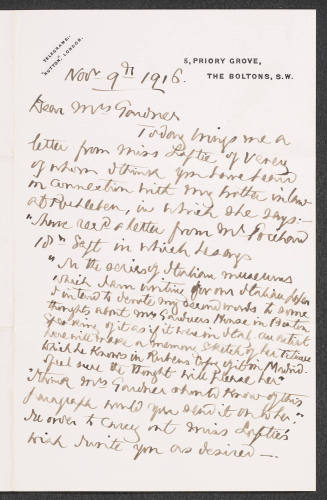 TELEGRAMS:-
"RUTTON, LONDON.
5, PRIORY GROVE,
THE BOLTONS, S.W.
Novr 9th 1916.
Dear Mrs Gardner
Today brings me a
letter from Miss Loftie of Vevey
of whom I think you have heard
in connection with my brother in law
at Ruhleben, in which she says:-
"I have recd a letter from Mr Prichard
18th Sept in which he says
"In the series of Italian museums
which I am writing for our Italian paper
I intend to devote my second words to some
thoughts about Mrs Gardner's House in Boston
speaking of it as if it was in Italy. An artist
here will make a memory sketch of her Titian
which he knows in Rubens' copy of it in Madrid.
I feel sure the thought will please her"
"I think Mrs Gardner should know of this
paragraph would you send it on to her."
In order to carry out Miss Loftie's
wish I write you as desired —.